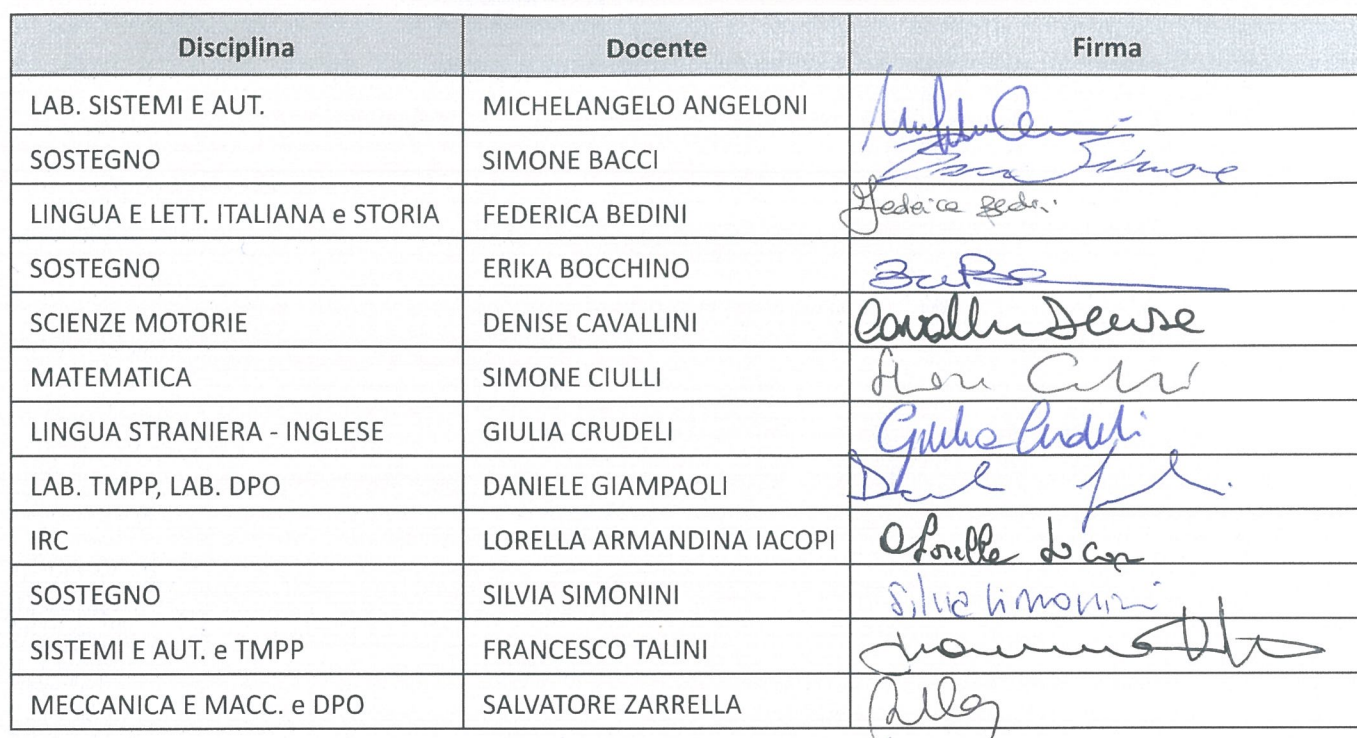 Disciplina Docente Firma
LAB. SISTEMI E AUT. MICHELANGELO ANGELONI
SOSTEGNO SIMONE BACCI Simone
LINGUA E LETT. ITALIANA e STORIA FEDERICA BEDINI Federica Bedini
SOSTEGNO ERIKA BOCCHINO
SCIENZE MOTORIE DENISE CAVALLINI Cavallin Denise
MATEMATICA SIMONE CIULLI
LINGUA STRANIERA - INGLESE GIULIA CRUDELI Giulia Crudeli
LAB. TMPP, LAB. DPO DANIELE GIAMPAOLI
IRC LORELLA ARMANDINA IACOPI Lorella Iacopi
SOSTEGNO SILVIA SIMONINI Silvia Simonini
SISTEMI E AUT. e TMPP FRANCESCO TALINI
MECCANICA E MACC. e DPO SALVATORE ZARRELLA